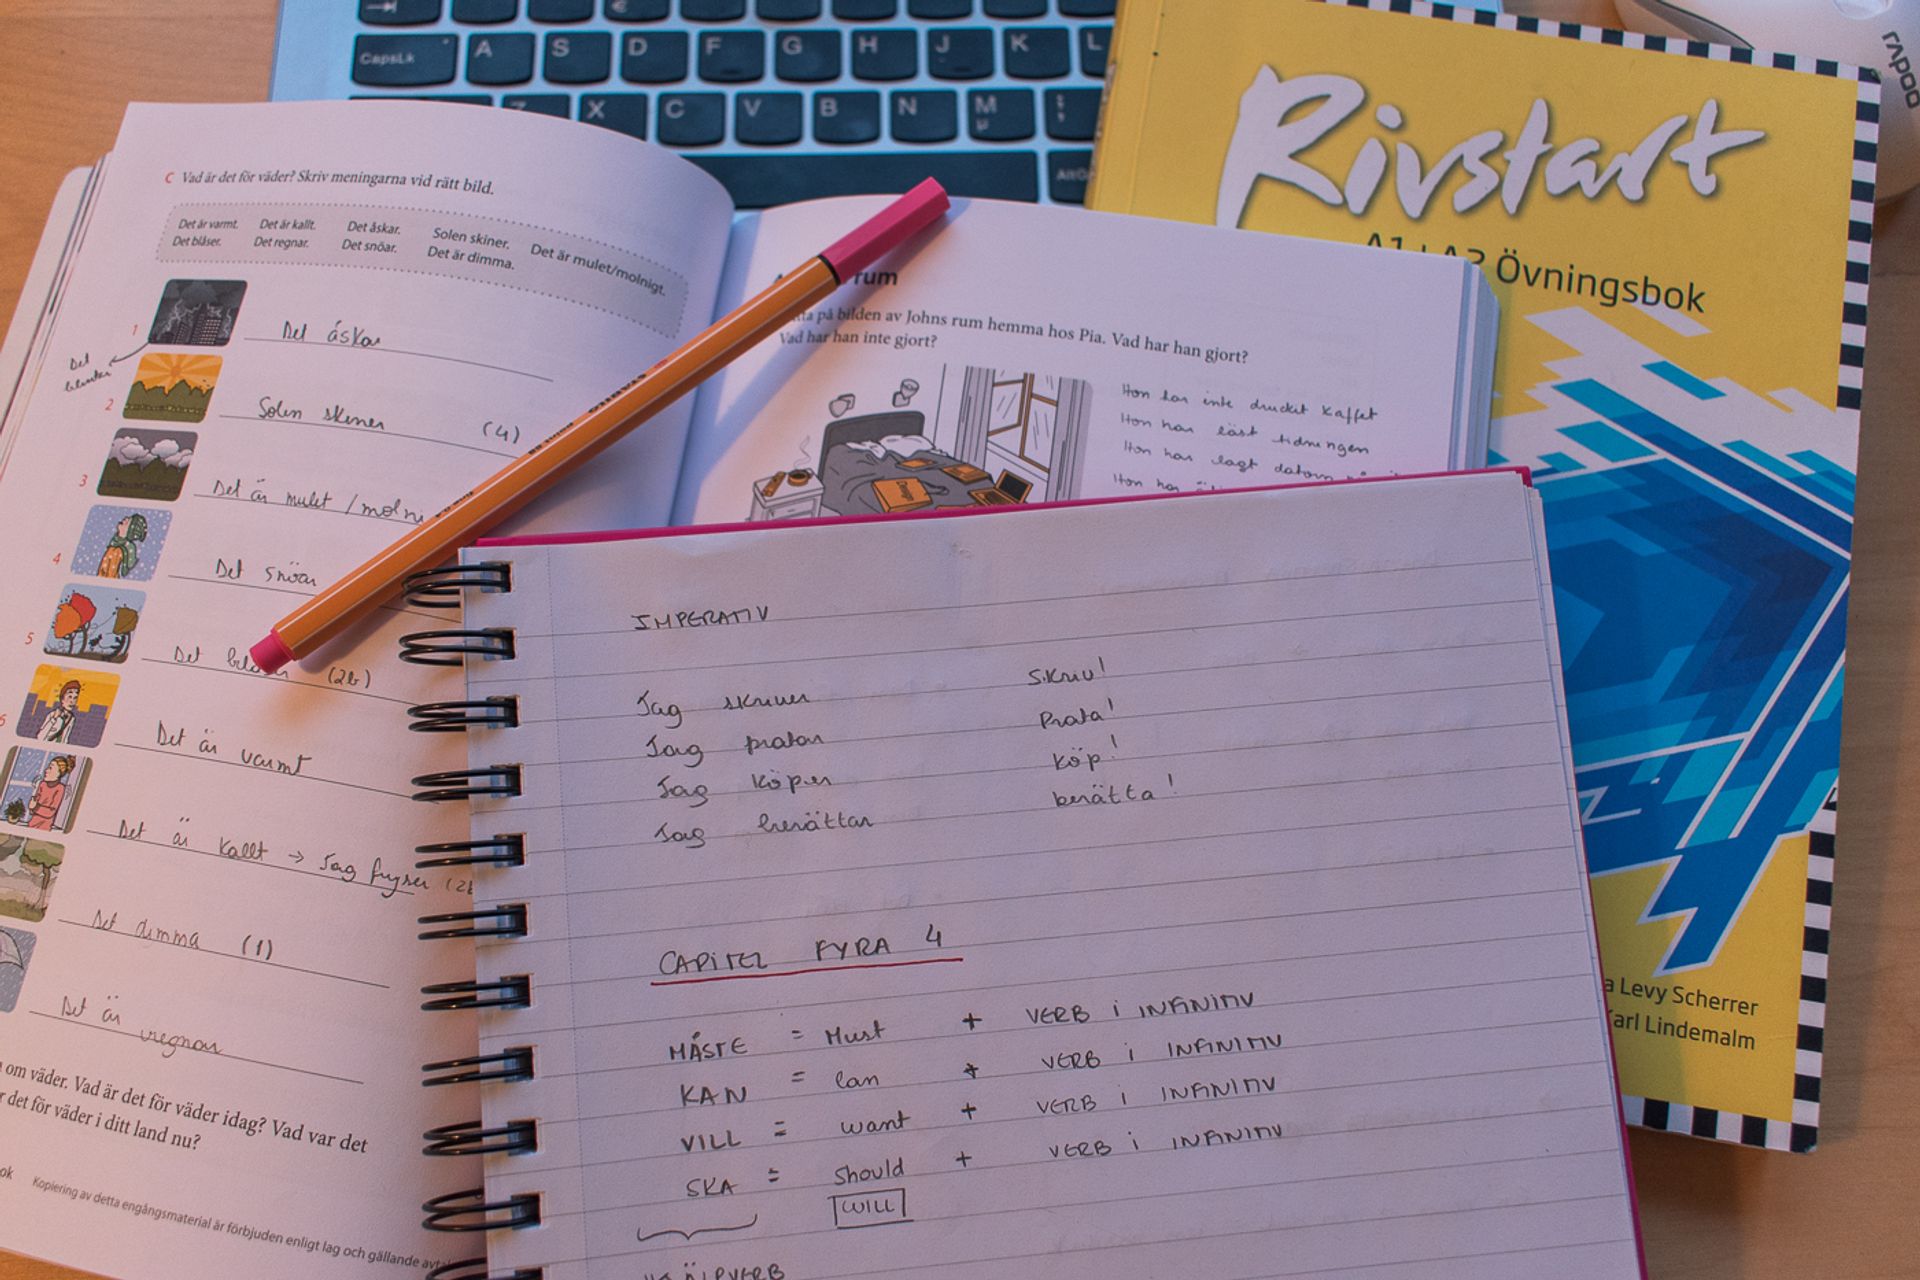 CapsLk A S D F G H J K L
Z X C V B N M µ ; ,
AltGr
rapoo
Rivstart
A1+A2 Övningsbok
a Levy Scherrer
Karl Lindemalm
C Vad är det för väder? Skriv meningarna vid rätt bild.
Det är varmt. Det är kallt. Det åskar. Solen skiner. Det är mulet/molnigt.
Det blåser. Det regnar. Det snöar. Det är dimma.
1 Det åskar
Det
2 Solen skiner (4)
3 Det är mulet / molni
4 Det snöar
5 Det (2b)
6 Det är varmt
Det är kallt → Jag fryser (2b
Det dimma (1)
Det är regnar
om väder. Vad är det för väder idag? Vad var det
r det för väder i ditt land nu?
ok Kopiering av detta engångsmaterial är förbjuden enligt lag och gällande avta
rum
tta på bilden av Johns rum hemma hos Pia. Vad har han gjort?
Vad har han inte gjort?
Design
Hon har inte druckit kaffet
Hon har läst tidningen
Hon har lagt datorn på
Hon har
IMPERATIV
Jag skriver Skriv!
Jag pratar Prata!
Jag köper köp!
Jag berättar berätta!
CAPITEL FYRA 4
MÅSTE = Must + VERB i INFINITIV
KAN = Can + VERB i INFINITIV
VILL = want + VERB i INFINITIV
SKA = should + VERB i INFINITIV
WILL
HJÄLPVERB